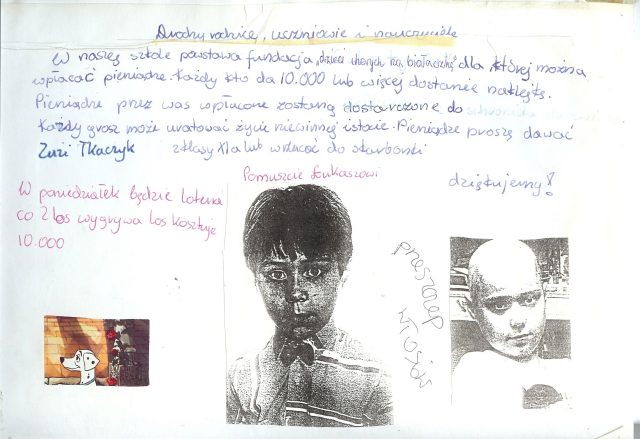 Drodzy rodzice, uczniowie i nauczyciele
W naszej szkole powstawa fundacja „dzieci chorych na białaczkę" dla której można
wpłacać pieniądze. Każdy kto da 10.000 lub więcej dostanee naklejkę.
Pieniądze przez was wpłacone zostaną dostarczone do
Każdy grosz może uratować życie niewinnej istocie. Pieniądze proszę dawać
Zuzi Tkaczyk z klasy VI a lub wrzucać do skarbonki
Pomuszcie Łukaszowi
dziękujemy!
W poniedziałek będzie loteria
co 2 los wygrywa los kosztuje
10.000
przeszczep
włosów